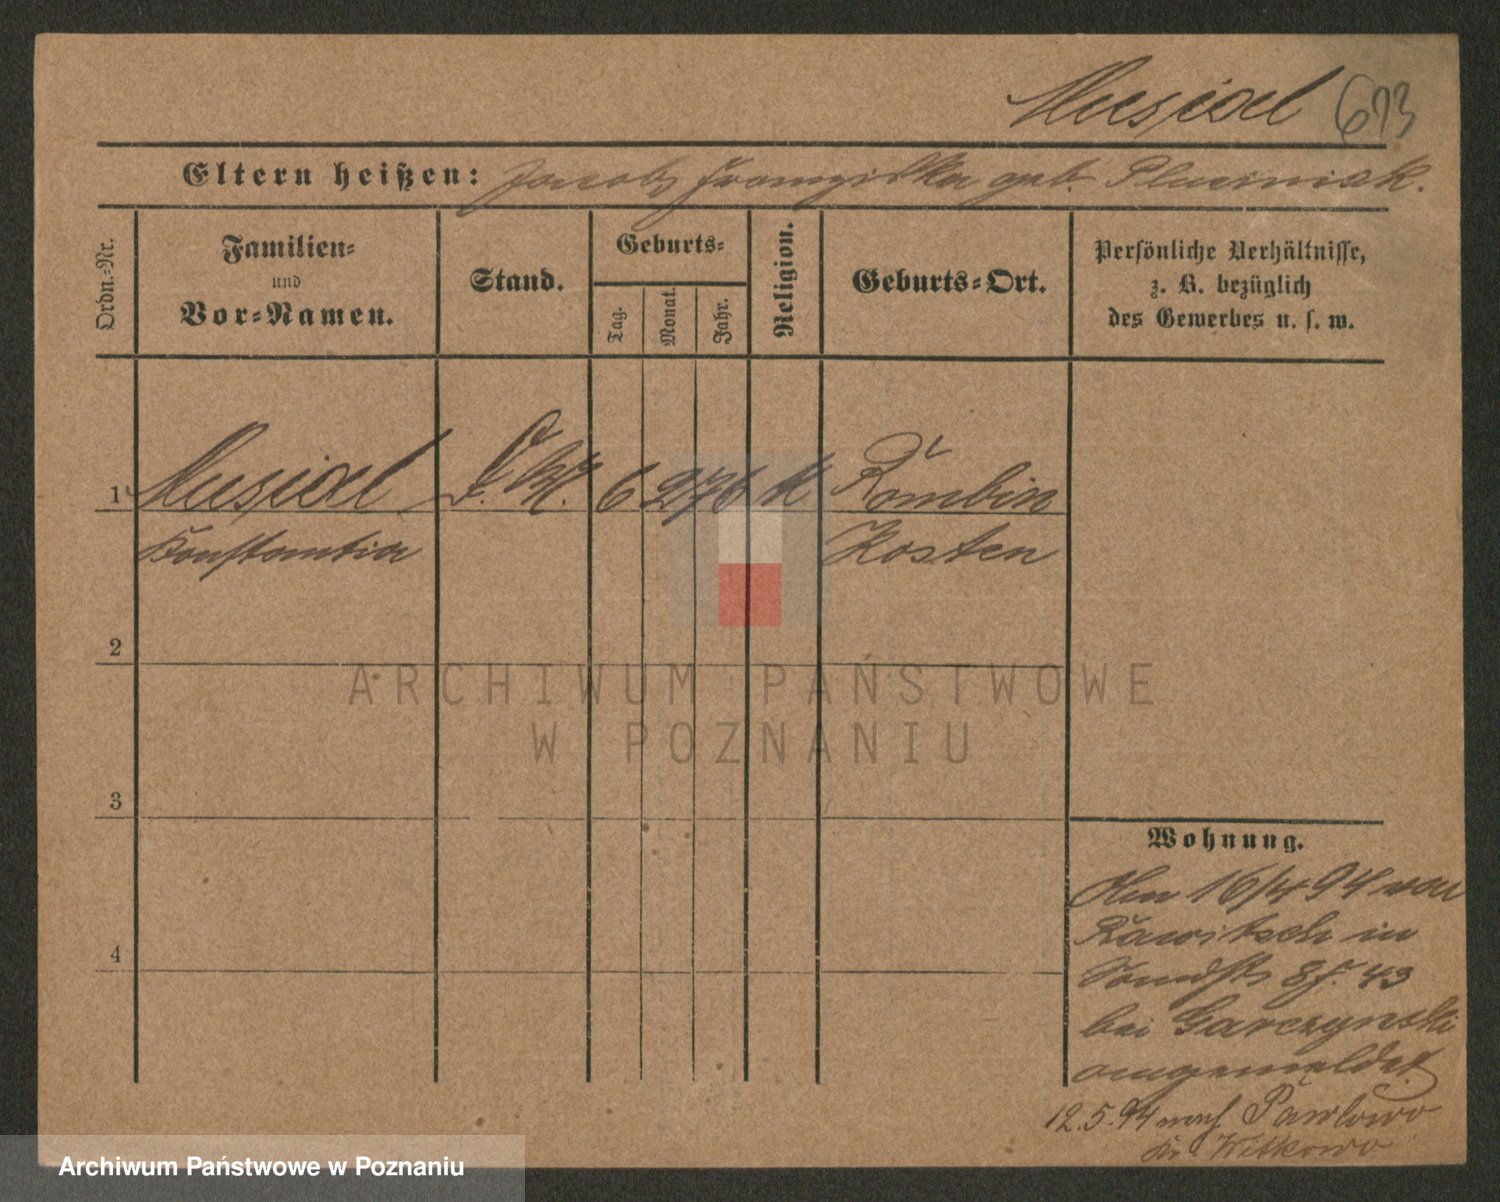 Musial 613
Eltern heißen: Jacob, Franziska geb. Pluciniak.
Ordn.-Nr.
Familien-
und
Vor-Namen.
Stand.
Geburts-
Tag.
Monat.
Jahr.
Religion.
Geburts-Ort.
Persönliche Verhältnisse,
z. B. bezüglich
des Gewerbes u. s. w.
1 Musial 6 2 76 k Rombin
Konstantia Kosten
2
3
4
Wohnung.
Am 16/4 94 von
Rawitsch in
8 f. 43
bei Garczynski
angemeldet
12.5.94 nach Pawlowo
Kr Witkowo
ARCHIWUM PAŃSTWOWE
W POZNANIU
Archiwum Państwowe w Poznaniu